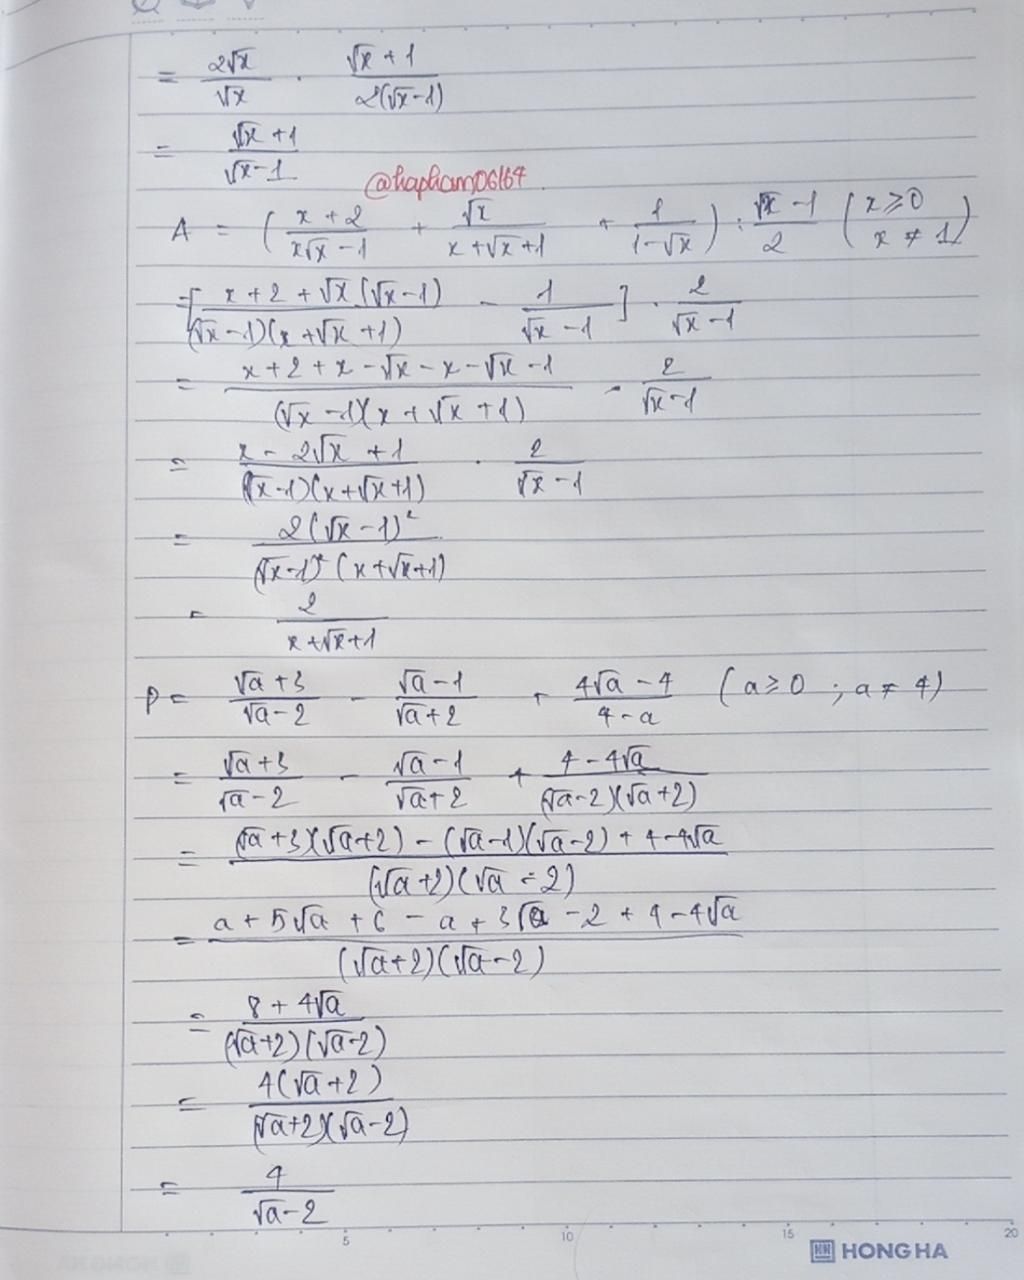 = 2√x/√x . (√x + 1)/(2(√x-1))
= (√x + 1)/(√x - 1)
@hapham06164
A = ( (x + 2)/(x√x - 1) + √x/(x + √x + 1) + 1/(1-√x) ) : (√x - 1)/2 ( x ≥ 0 x ≠ 1 )
= [ (x + 2 + √x (√x - 1))/((√x - 1)(x + √x + 1)) - 1/(√x - 1) ] . 2/(√x - 1)
= (x + 2 + x - √x - x - √x - 1)/((√x - 1)(x + √x + 1)) . 2/(√x - 1)
= (x - 2√x + 1)/((√x - 1)(x + √x + 1)) . 2/(√x - 1)
= 2(√x - 1)²/((√x - 1)² (x + √x + 1))
= 2/(x + √x + 1)
P = (√a + 3)/(√a - 2) - (√a - 1)/(√a + 2) + (4√a - 4)/(4 - a) (a ≥ 0 ; a ≠ 4)
= (√a + 3)/(√a - 2) - (√a - 1)/(√a + 2) + (4 - 4√a)/((√a - 2)(√a + 2))
= ((√a + 3)(√a + 2) - (√a - 1)(√a - 2) + 4 - 4√a)/((√a + 2)(√a - 2))
= (a + 5√a + 6 - a + 3√a - 2 + 4 - 4√a)/((√a + 2)(√a - 2))
= (8 + 4√a)/((√a + 2)(√a - 2))
= 4(√a + 2)/((√a + 2)(√a - 2))
= 4/(√a - 2)
5 10 15 20
HONG HA